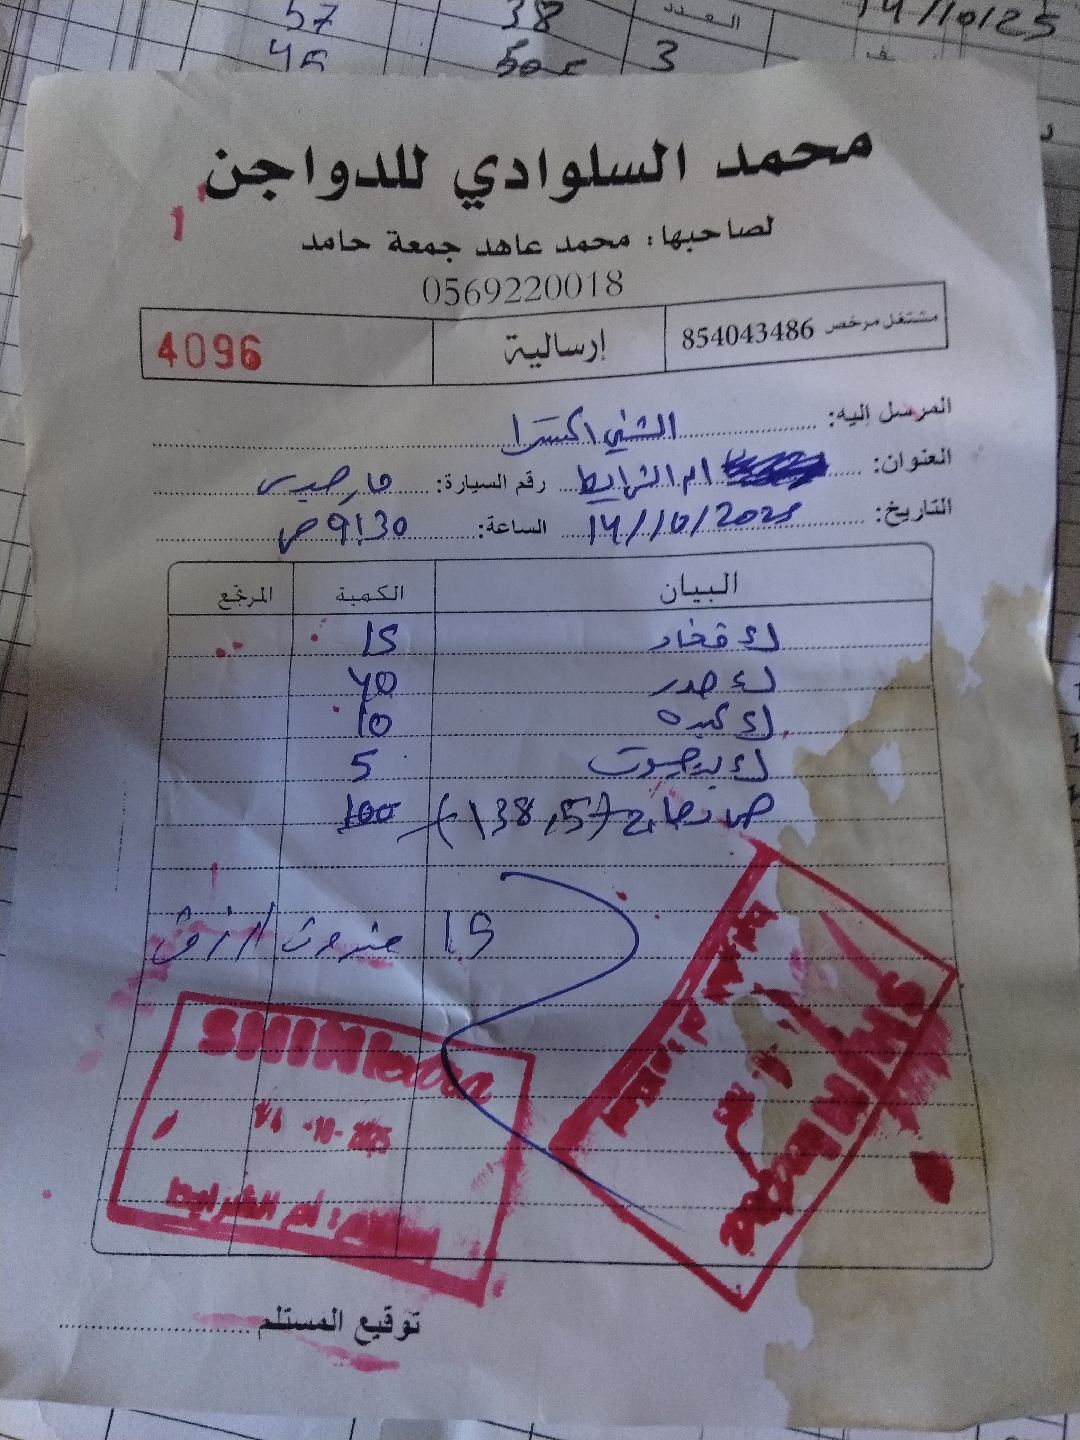 57 38 العدد 14/10/25
45 50 3
محمد السلوادي للدواجن
لصاحبها: محمد عاهد جمعة حامد
0569220018
مشتغل مرخص 854043486 إرسالية 4096
المرسل اليه: الشني اكسترا
العنوان: ام الشرايط رقم السيارة:
التاريخ: 14/10/2025 الساعة: 9:30 ص
البيان الكمية المرتجع
ك فخاد 15
ك صدر 40
ك كبده 10
ك 5
ص دجاج (138,5) 100
15 صندوق ازرق
SHINI extra
14 -10- 2025
أم الشرايط
SHINI extra
توقيع المستلم